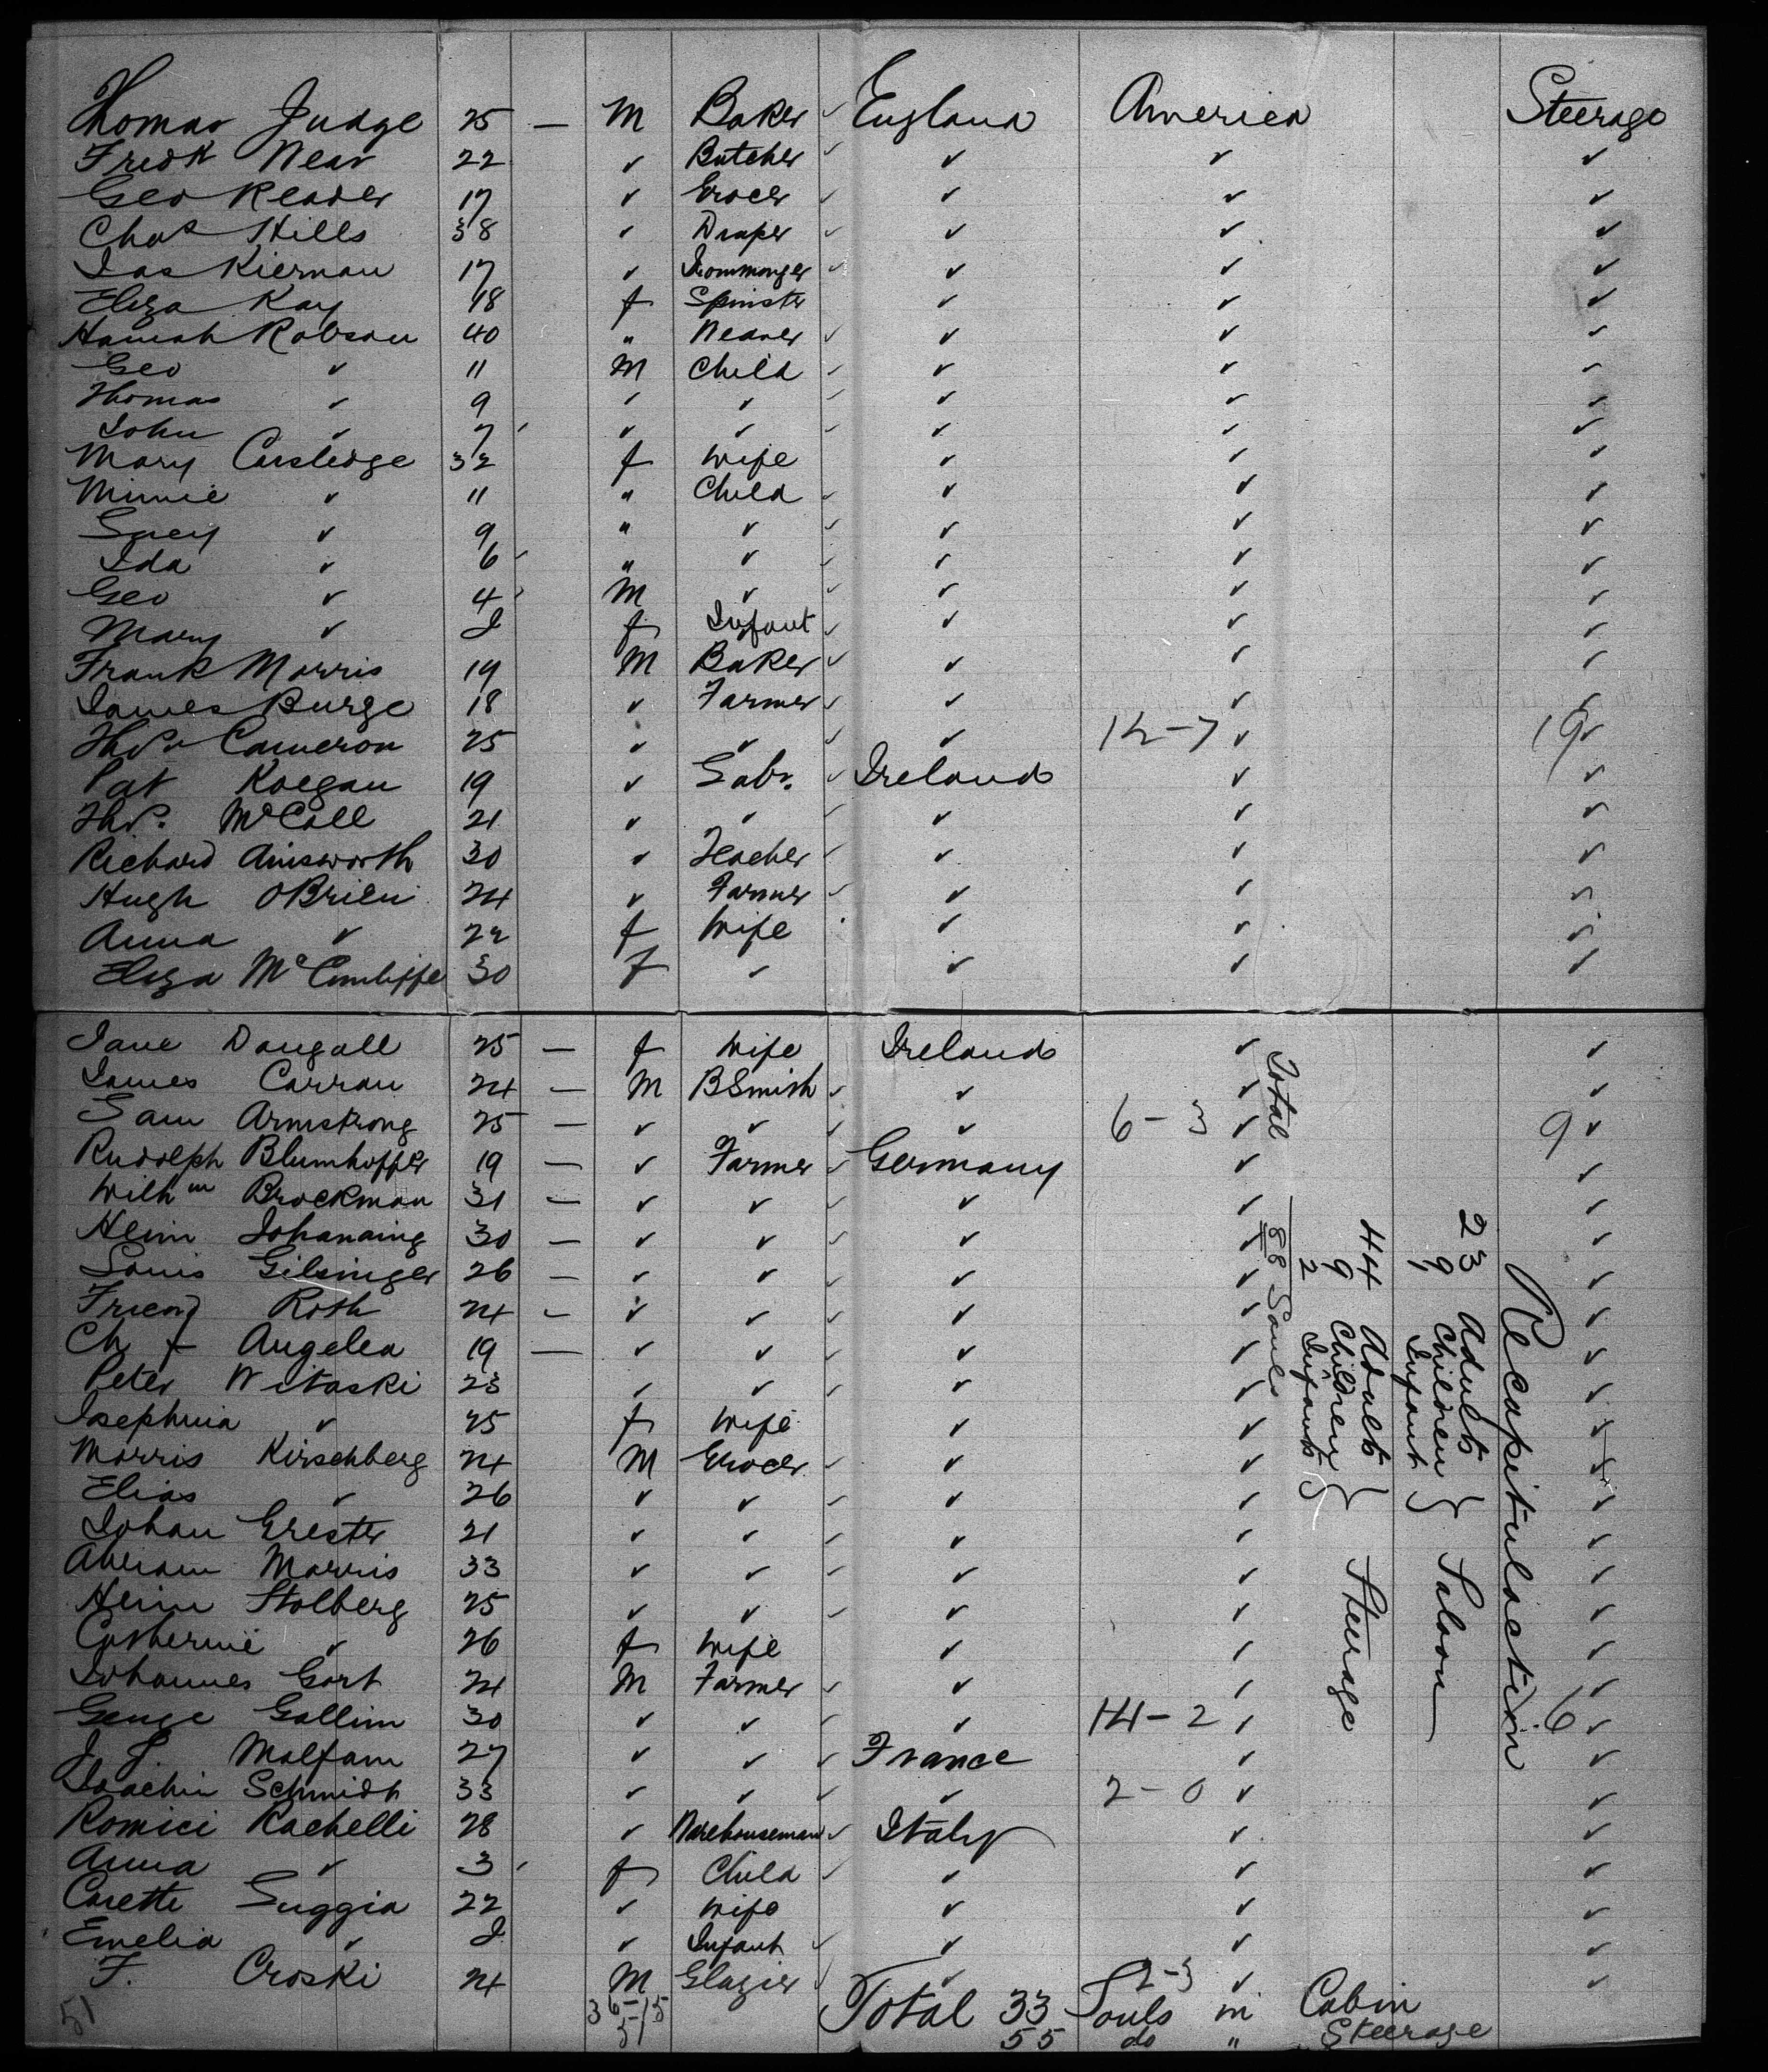 Thomas Judge 25 — M Baker ✓ England America Steerage
Fredk Near 22 ✓ Butcher ✓ ✓ ✓ ✓
Geo Reader 17 ✓ Grocer ✓ ✓ ✓ ✓
Chas Hills 38 ✓ Draper ✓ ✓ ✓ ✓
Jas Kiernan 17 ✓ Ironmonger ✓ ✓ ✓ ✓
Eliza Kay 18 f Spinster ✓ ✓ ✓
Hannah Robson 40 " Weaver ✓ ✓ ✓ ✓
Geo ✓ 11 M Child ✓ ✓ ✓ ✓
Thomas ✓ 9 ✓ ✓ ✓ ✓ ✓ ✓
John ✓ 7 ✓ ✓ ✓ ✓ ✓ ✓
Mary Carsledge 32 f Wife ✓ ✓ ✓
Minnie ✓ 11 " Child ✓ ✓ ✓ ✓
Lucy ✓ 9 " ✓ ✓ ✓ ✓ ✓
Ida ✓ 6 " ✓ ✓ ✓ ✓ ✓
Geo ✓ 4 M ✓ ✓ ✓ ✓ ✓
Mary ✓ I f Infant ✓ ✓ ✓ ✓
Frank Morris 19 M Baker ✓ ✓ ✓ ✓
James Burge 18 ✓ Farmer ✓ ✓ ✓ ✓
Thos Cameron 25 ✓ ✓ ✓ ✓ 12-7 ✓ 19 ✓
Pat Keegan 19 ✓ Labr. ✓ Ireland ✓ ✓
Thos. McCall 21 ✓ ✓ ✓ ✓ ✓
Richard Ainsworth 30 ✓ Teacher ✓ ✓ ✓ ✓
Hugh OBrien 24 ✓ Farmer ✓ ✓ ✓ ✓
Anna ✓ 22 f Wife ✓ ✓ ✓
Eliza McCunliffe 30 f ✓ ✓ ✓ ✓
Jane Dougall 25 — f Wife Ireland ✓ ✓
James Carran 24 — M BSmith ✓ ✓ ✓ ✓
Sam Armstrong 25 — ✓ ✓ ✓ ✓ 6-3 ✓ 9 ✓
Rudolph Blumhoffer 19 — ✓ Farmer ✓ Germany ✓ ✓
Wilhm Brockman 31 — ✓ ✓ ✓ ✓ ✓ ✓
Heim Johanning 30 — ✓ ✓ ✓ ✓ ✓
Louis Gilsinger 26 — ✓ ✓ ✓ ✓ ✓ ✓
Roth 24 — ✓ ✓ ✓ ✓ ✓ ✓
Ch f Angelea 19 — ✓ ✓ ✓ ✓ ✓ ✓
Peter Witaski 23 ✓ ✓ ✓ ✓ ✓ ✓
Josephina ✓ 25 f Wife ✓ ✓ ✓
Morris Kirschberg 24 M Grocer ✓ ✓ ✓ ✓
Elias ✓ 26 ✓ ✓ ✓ ✓ ✓ ✓
Johan Grester 21 ✓ ✓ ✓ ✓ ✓ ✓
Morris 33 ✓ ✓ ✓ ✓ ✓ ✓
Heim Stolberg 25 ✓ ✓ ✓ ✓ ✓ ✓
Catherine ✓ 26 f Wife ✓ ✓ ✓
Johannes Gort 24 M Farmer ✓ ✓ ✓ ✓
George Gollim 30 ✓ ✓ ✓ ✓ 14-2 ✓ 16 ✓
J. J. Malfam 27 ✓ ✓ ✓ France ✓ ✓
Joachim Schmidt 33 ✓ ✓ ✓ ✓ 2-0 ✓ ✓
Romici Rachelli 28 ✓ Warehouseman ✓ Italy ✓ ✓
Anna ✓ 3 f Child ✓ ✓ ✓ ✓
Carette Suggia 22 ✓ Wife ✓ ✓ ✓
Emelia ✓ I ✓ Infant ✓ ✓ ✓ ✓
F. Croski 24 M Glazier ✓ ✓ 2-3 ✓ ✓
51 36-15 Total 33 Souls in Cabin
51 55 do " Steerage
Recapitulaction
23 Adults
9 Children } Saloon
Infant
44 Adults
9 Children } Steerage
2 Infants
Total 88 Souls